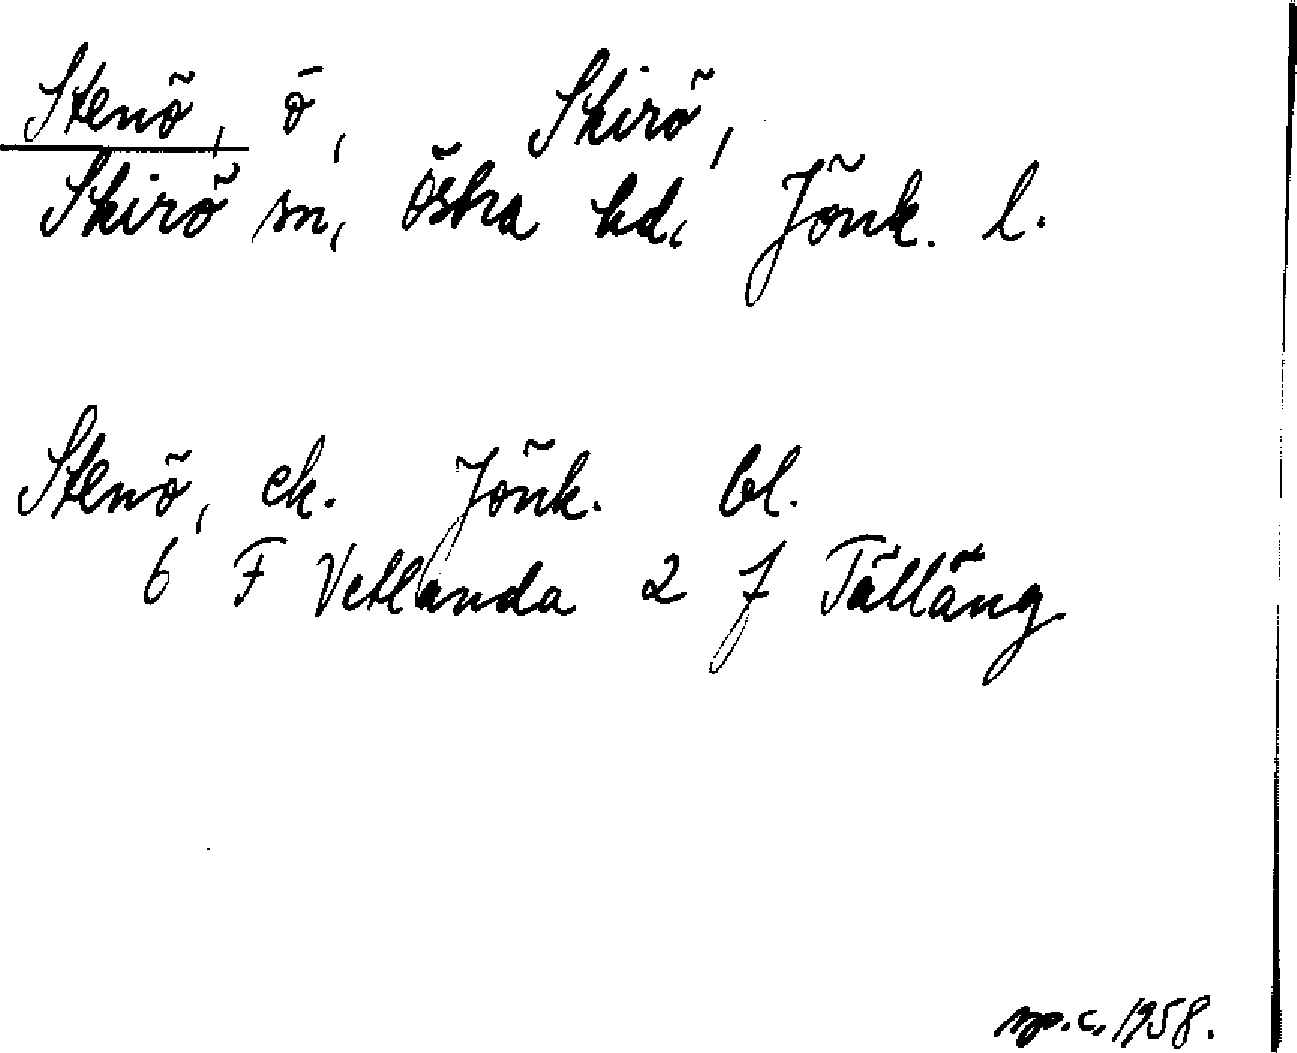 Stenö, ö, Skirö,
Skirö sn, Östra hd, Jönk. l.
Stenö, ek. Jönk. bl.
6 F Vetlanda 2 j Tälläng
1958.